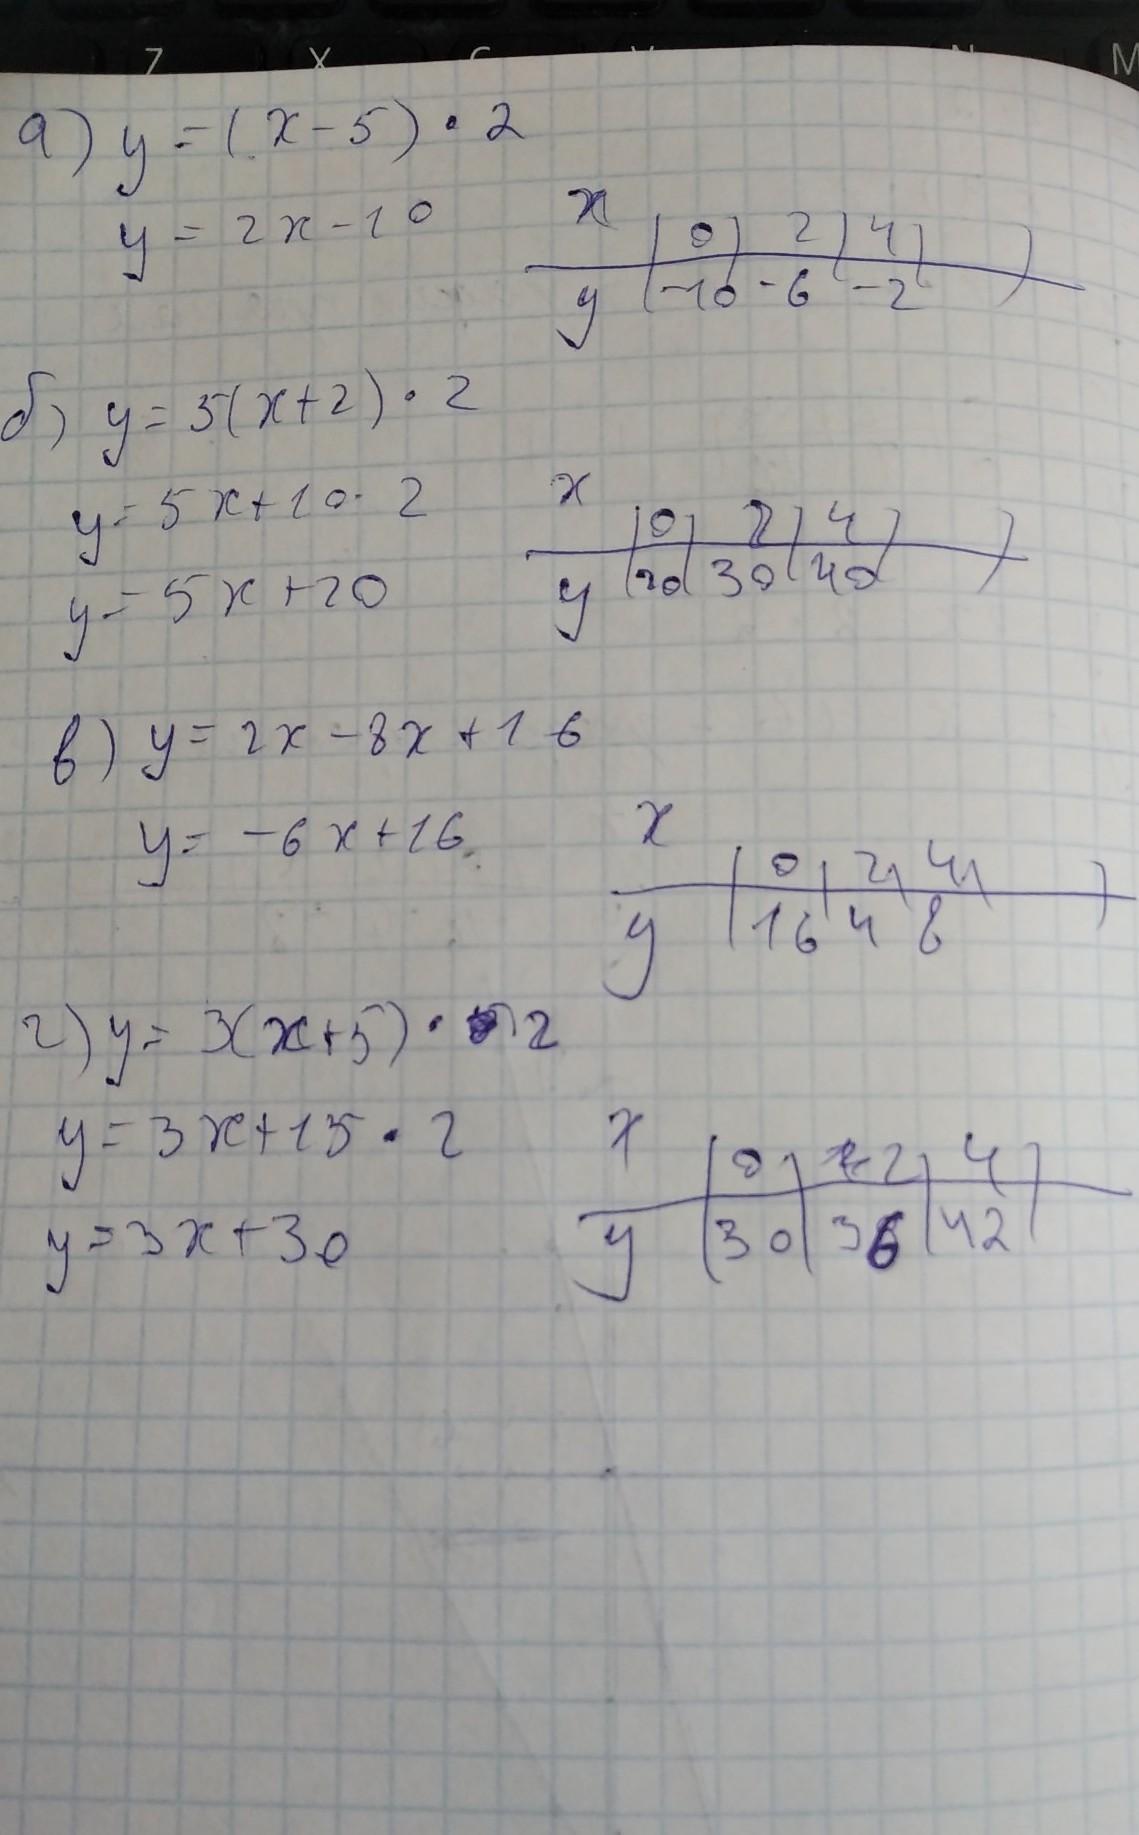 Z X C V N M
а) y = (x - 5) · 2
y = 2x - 10
x | 0 | 2 | 4 |
y | -10 -6 | -2
б) y = 5(x+2) · 2
y = 5x+10 · 2
y = 5x+20
x | 0 | 2 | 4 |
y | 20 | 30 | 40
в) y = 2x - 8x + 16
y = -6x+16
x | 0 | 2 | 4 |
y | 16 4 8
г) y = 3(x+5) · 2
y = 3x+15 · 2
y = 3x+30
x | 0 | 2 | 4 |
y | 30 | 36 | 42